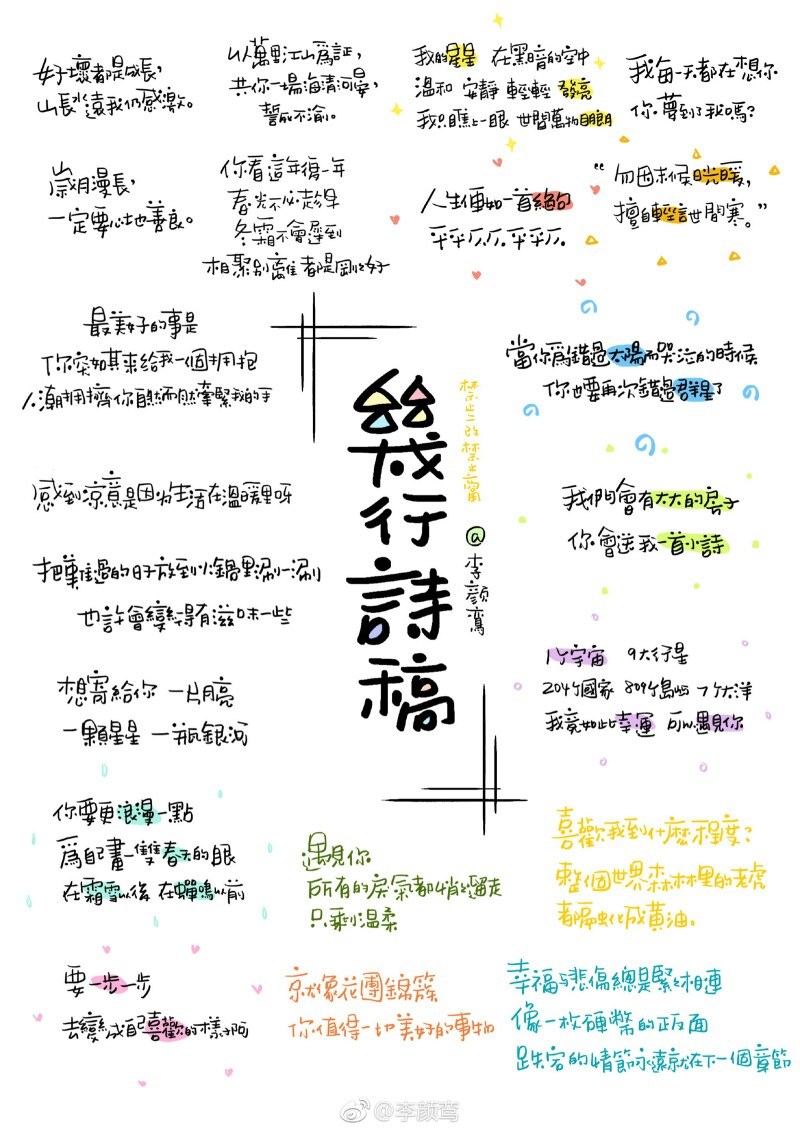 好壞都是成長，
山長水遠我仍感激。
以萬里江山爲証，
共你一場海清河晏，
誓成不渝。
我的星星 在黑暗的空中
溫和 安靜 輕輕 發亮
我只瞧上一眼 世間萬物明朗
我每一天都在想你
你 夢到了我嗎？
歲月漫長，
一定要心地善良。
你看這年復一年
春光不必趁早
冬霜不會遲到
相聚別離 都是剛好
人生便如一首絕句
平平仄仄平平仄。
“勿因未候晄暖，
擅自輕言世間寒。”
最美好的事是
你突如其來給我一個擁抱
人潮擁擠你自然而然牽緊我的手
當你爲錯過太陽而哭泣的時候
你也要再次錯過群星了
感到涼意是因为生活在溫暖里呀
我們會有大大的房子
你會送我一首小詩
把難過的日子放到火鍋里涮一涮
也許會變得有滋味一些
幾行詩稿
禁止二改禁止商
@李顏鸞
想寄給你 一片月亮
一顆星星 一瓶銀河
1个宇宙 9大行星
204个國家 809个島屿 7个大洋
我竟如此幸運 可以遇見你
你要更浪漫一點
爲自己畫一雙春天的眼
在霜雪以後 在蟬鳴以前
遇見你
所有的戾氣都悄悄溜走
只剩溫柔
喜歡我到什麼程度？
整個世界森林里的老虎
都融化成黃油。
要一步一步
去變成自己喜歡的樣子阿
就像花團錦簇
你值得一切美好的事物
幸福与悲傷總是緊緊相連
像一枚硬幣的正反面
跌宕的情節永遠就在下一個章節
@李颜鸾